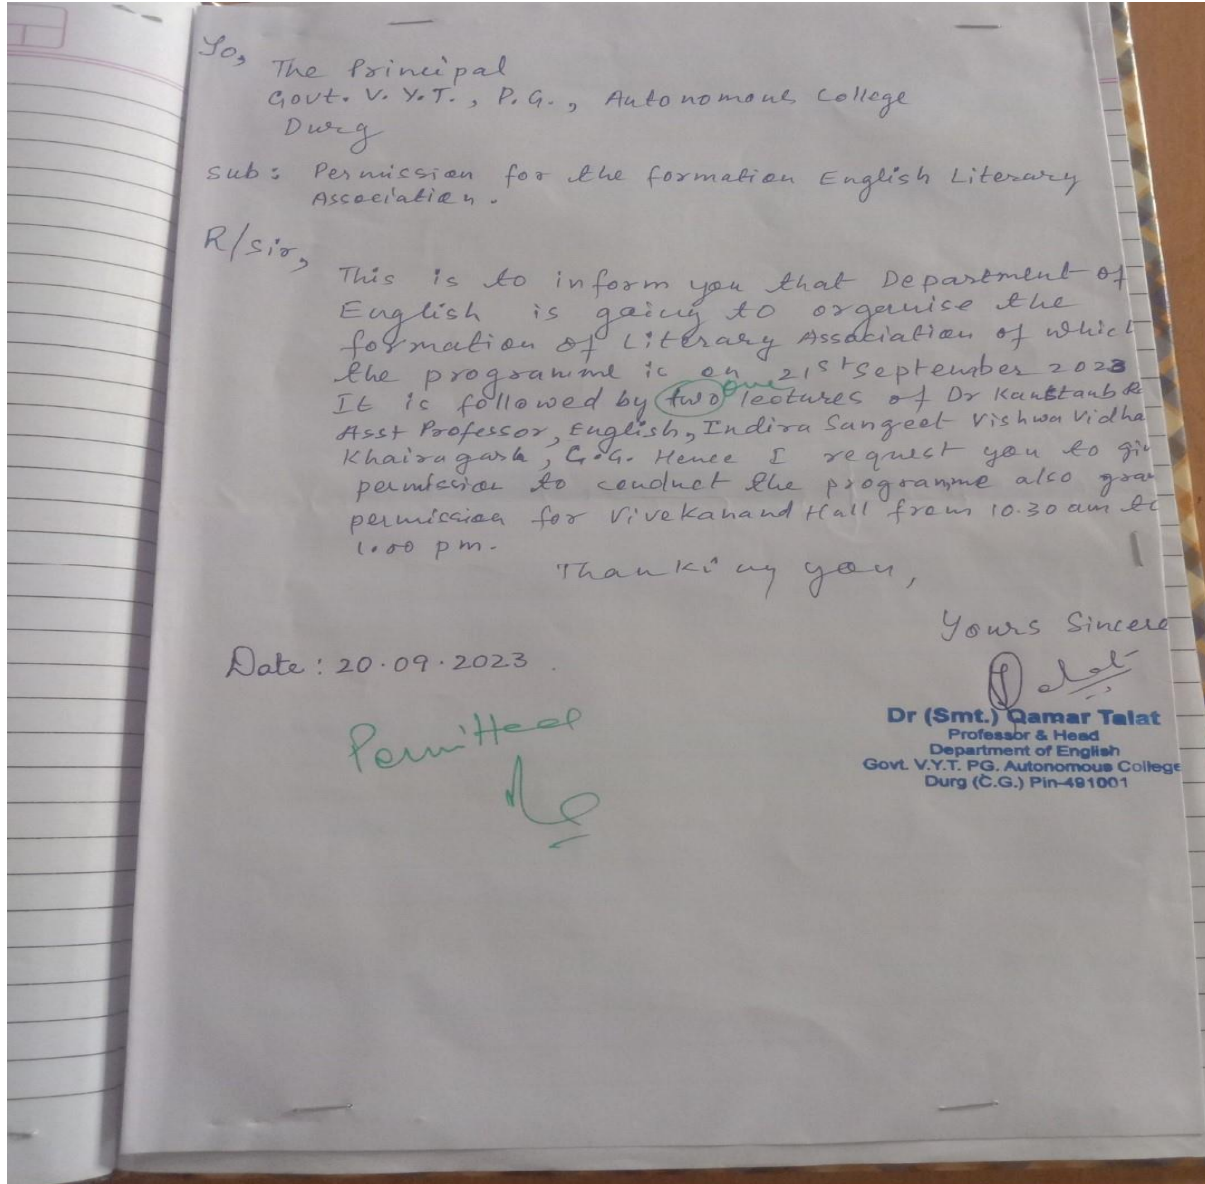 To,
The Principal
Govt. V.Y.T., P.G., Autonomous College
Durg
Sub: Permission for the formation English Literary
Association.
R/Sir,
This is to inform you that Department of
English is going to organise the
formation of Literary Association of which
the programme is on 21st September 2023
one
It is followed by two lectures of Dr Kaustaub
Asst Professor, English, Indira Sangeet Vishwa Vidha
Khairagarh, C.G. Hence I request you to
permission to conduct the programme also
permission for Vivekanand Hall from 10.30 am to
1.00 pm.
Thanking you,
Yours Sincere
Date: 20.09.2023.
Permitted
Dr (Smt.) Qamar Talat
Professor & Head
Department of English
Govt. V.Y.T. PG. Autonomous College
Durg (C.G.) Pin-491001